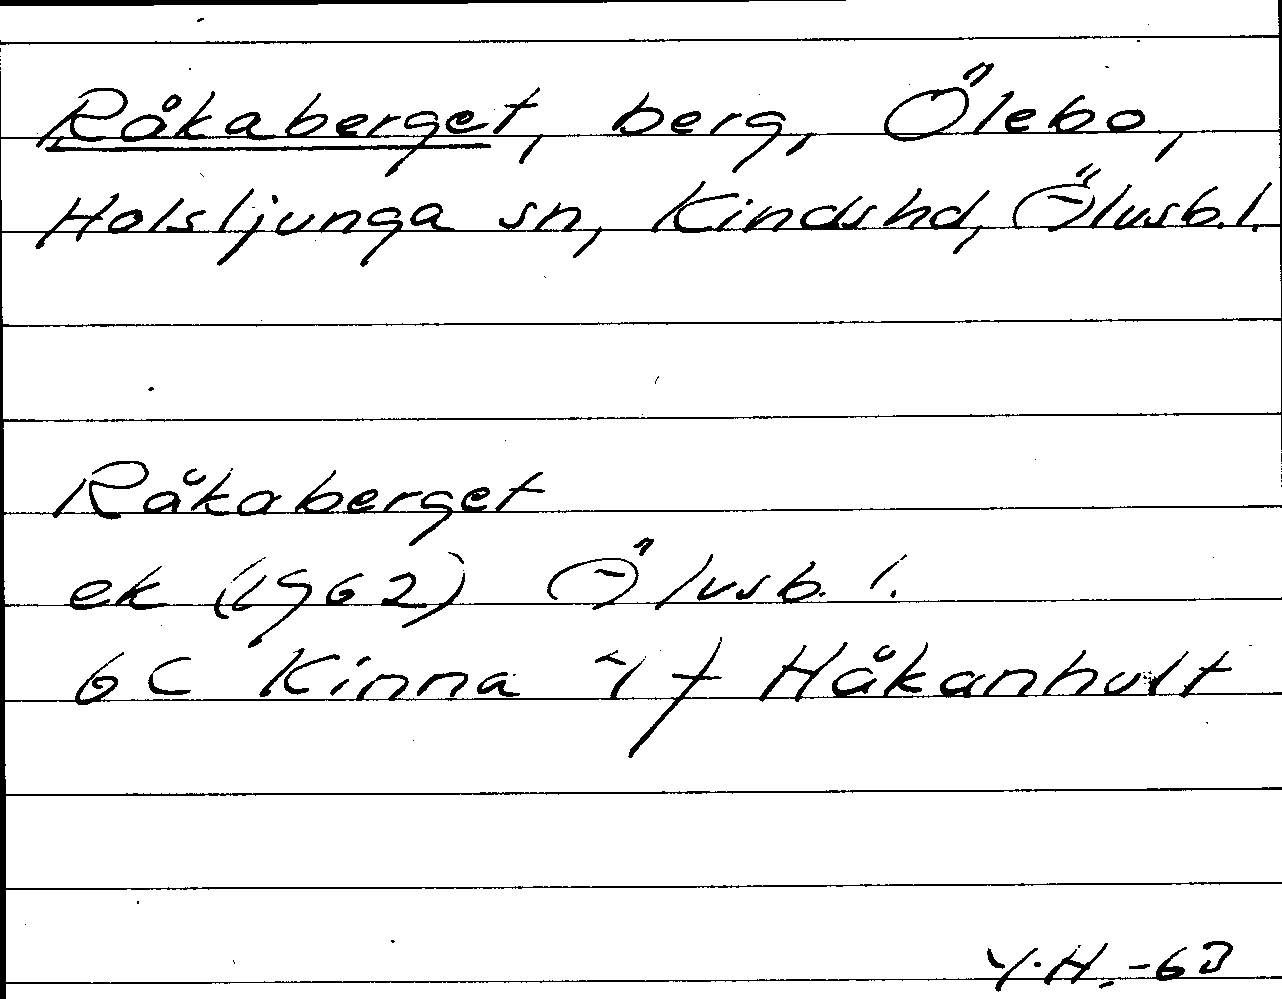 Råkaberget, berg, Ölebo,
Holsljunga sn, Kindshd, Älvsb. l.
Råkaberget
ek (1962) Älvsb. l.
6 C Kinna 4 f Håkanhult
Y. H. -63